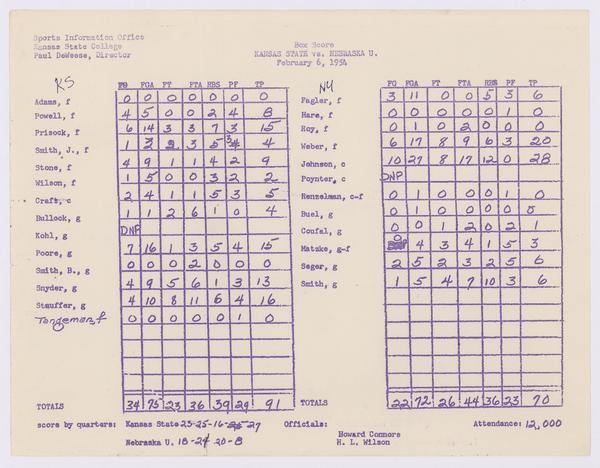 Sports Information Office
Kansas State College
Paul DeWeese, Director
Box Score
KANSAS STATE vs. NEBRASKA U.
February 6, 1954
KS
FG FGA FT FTA RBS PF TP
Adams, f 0 0 0 0 0 0 0
Powell, f 4 5 0 0 2 4 8
Prisock, f 6 14 3 3 7 3 15
Smith, J., f 1 3 2 3 5 4
Stone, f 4 9 1 1 4 2 9
Wilson, f 1 5 0 0 3 2 2
Craft, c 2 4 1 1 5 3 5
Bullock, g 1 1 2 6 1 0 4
Kohl, g DNP
Poore, g 7 16 1 3 5 4 15
Smith, B., g 0 0 0 2 0 0 0
Snyder, g 4 9 5 6 1 3 13
Stauffer, g 4 10 8 11 6 4 16
Tangeman, f 0 0 0 0 0 1 0
TOTALS 34 75 23 36 39 29 91
NU
FG FGA FT FTA RBR PF TP
Fagler, f 3 11 0 0 5 3 6
Hare, f 0 0 0 0 0 1 0
Roy, f 0 1 0 2 0 0 0
Weber, f 6 17 8 9 6 3 20
Johnson, c 10 27 8 17 12 0 28
Poynter, c DNP
Renzelman, c-f 0 1 0 0 0 1 0
Buel, g 0 1 0 0 0 0 0
Coufal, g 0 0 1 2 0 2 1
Matzke, g-f 0 4 3 4 1 5 3
Seger, g 2 5 2 3 2 5 6
Smith, g 1 5 4 7 10 3 6
TOTALS 22 72 26 44 36 23 70
score by quarters: Kansas State 23-25-16-27
Nebraska U. 18-24 20-8
Officials:
Howard Connors
H. L. Wilson
Attendance: 12,000